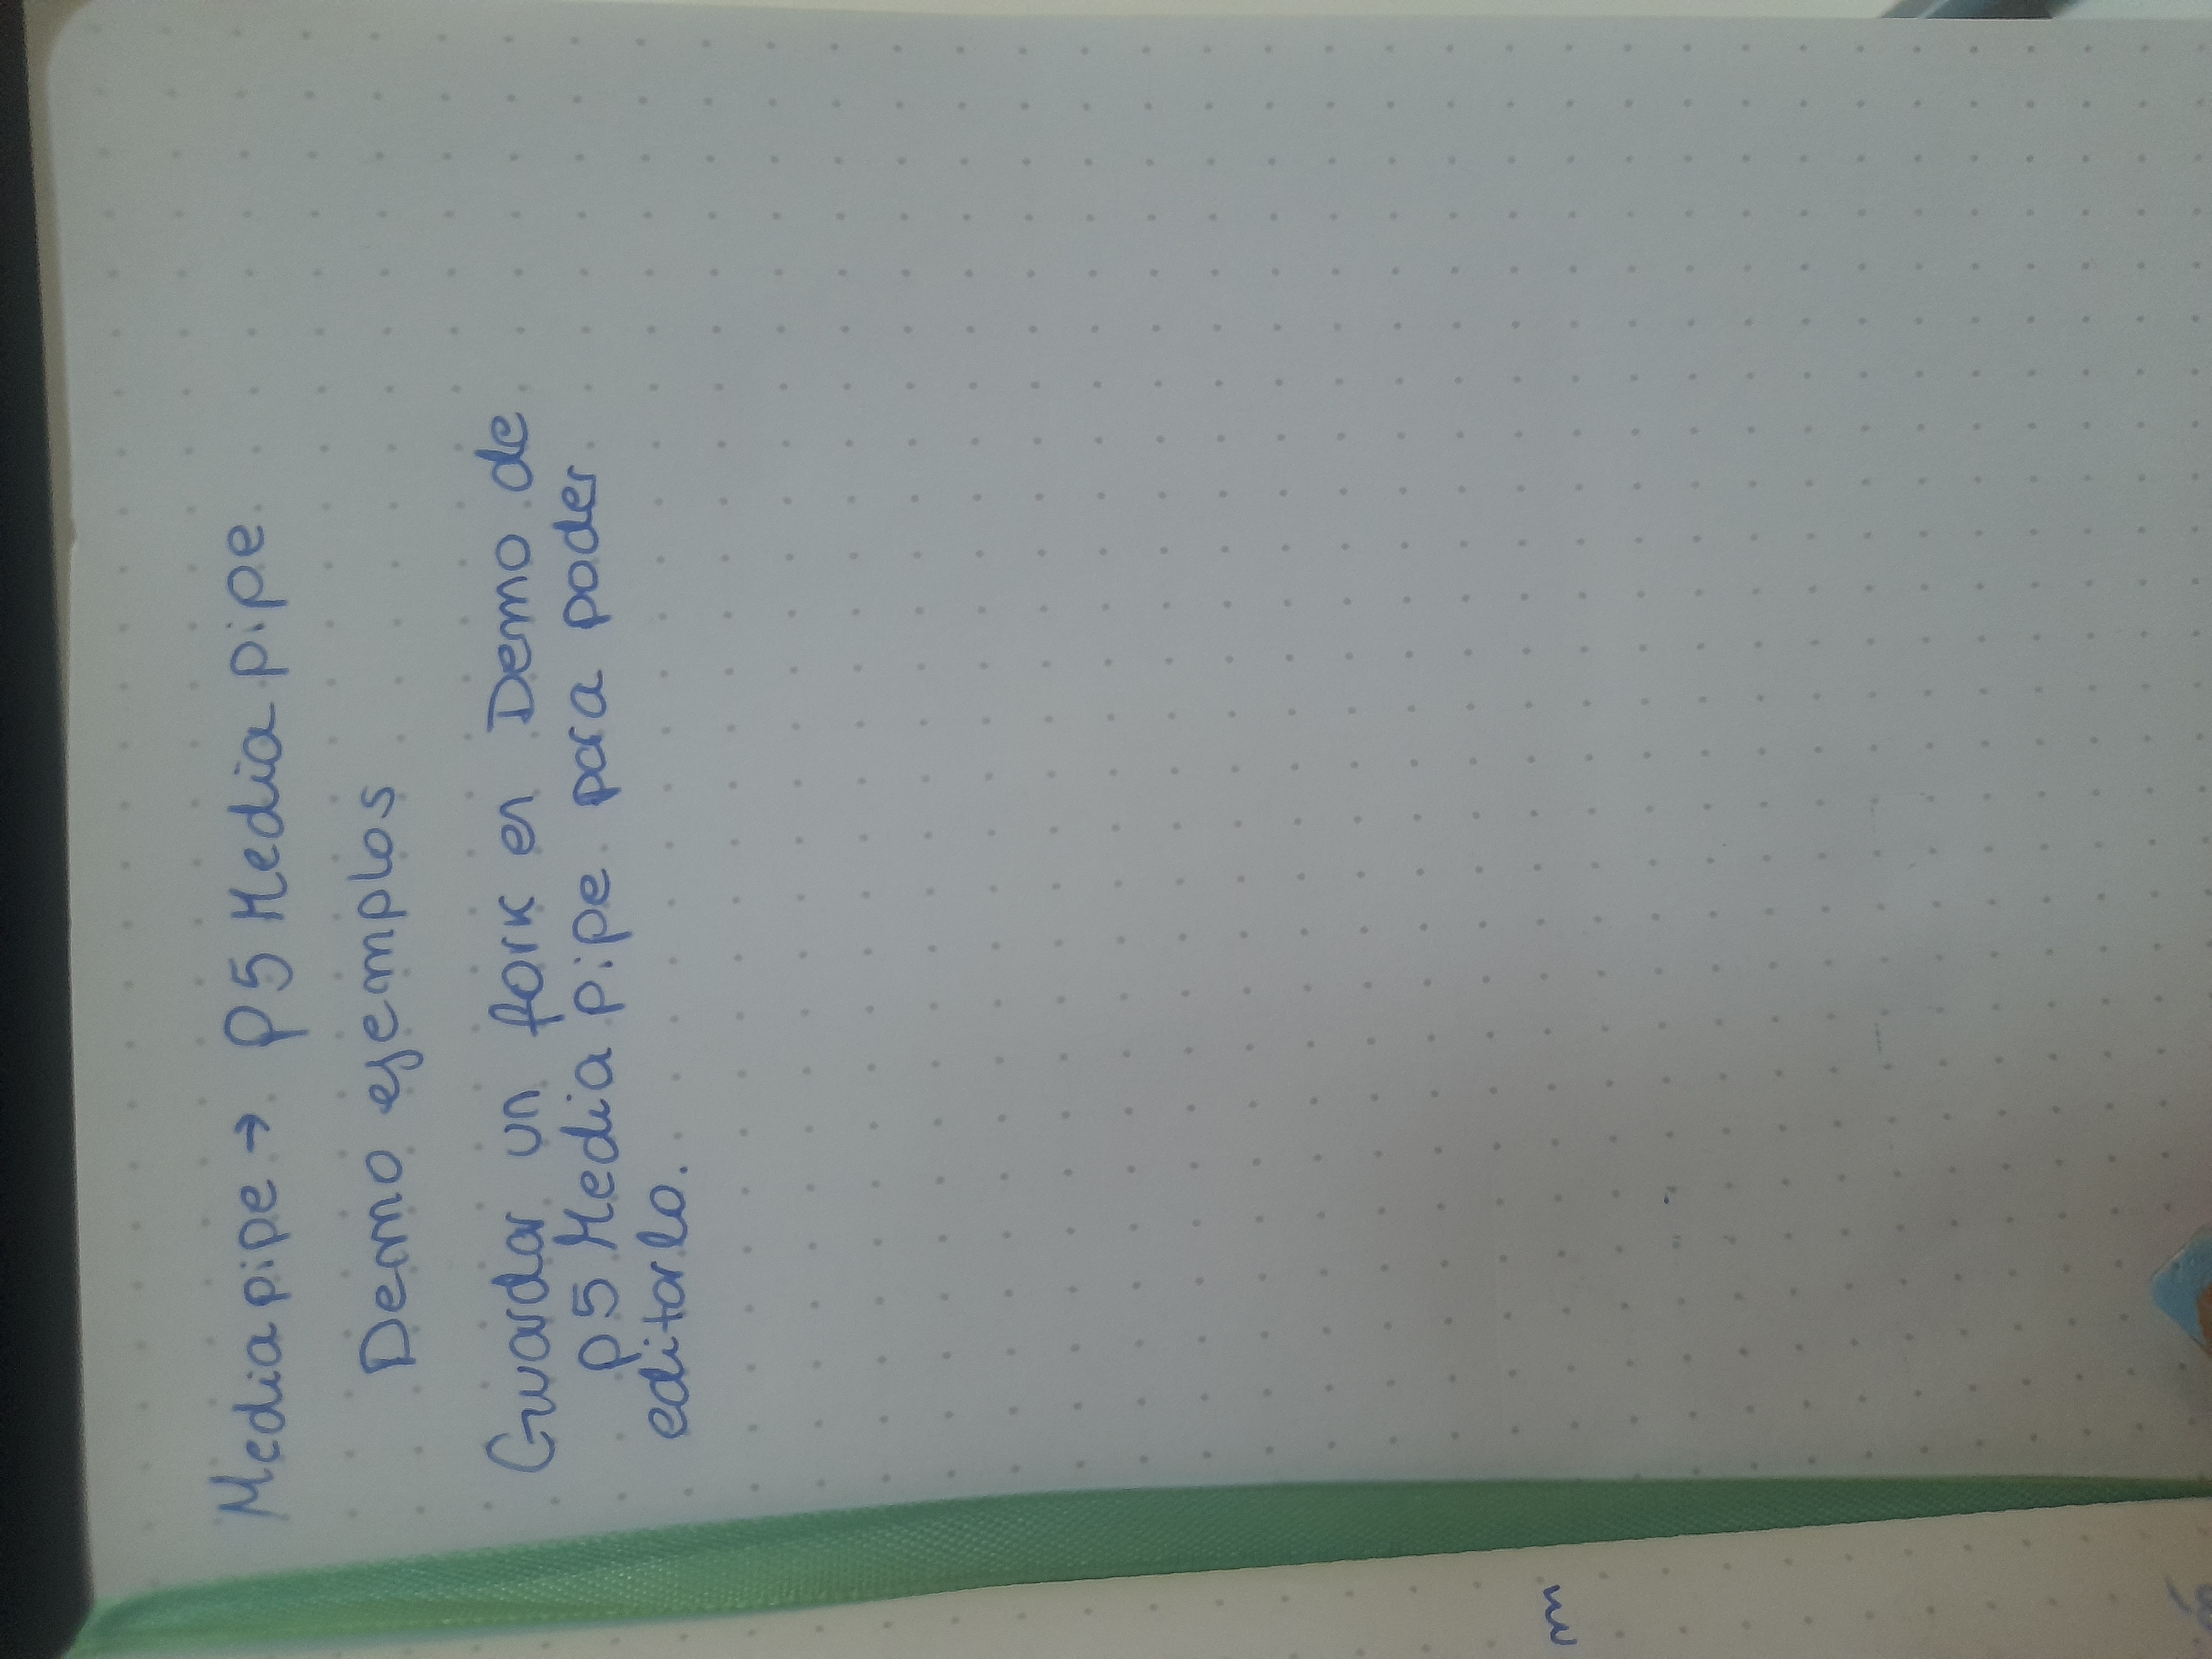 Mediapipe → P5 Mediapipe
Demo ejemplos
Guardar un fork en Demo de
p5 Mediapipe para poder
editarlo.
m